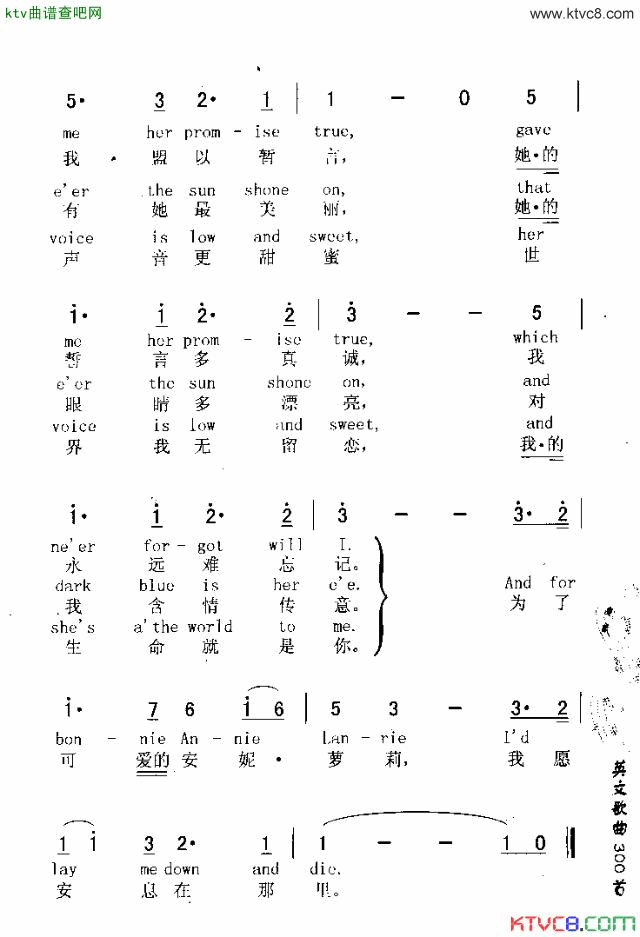 ktv曲谱查吧网
www.ktvc8.com
5· 3 2· 1 | 1 – 0 5 |
me her prom - ise true, gave
我·盟以暂言, 她·的
e'er the sun shone on, that
有她最美丽, 她·的
voice is low and sweet, her
声音更甜蜜 世
1· 1 2· 2 | 3 – – 5 |
me her prom - ise true, which
誓言多真诚, 我
e'er the sun shone on, and
眼睛多漂亮, 对
voice is low and sweet, and
界我无留恋, 我·的
1· 1 2· 2 | 3 – – 3· 2 |
ne'er for-got will I.
永远难忘记。
dark blue is her e'e. And for
我含情传意。 为了
she's a'the world to me.
生命就是你。
1· 7 6 1 6 | 5 3 – 3· 2 |
bon - nie An - nie Lan - rie I'd
可爱的安妮·萝莉, 我愿
1 1 3 2· 1 | 1 – – 1 0 ‖
lay me down and die.
安息在那里。
英文歌曲300首
KTVC8.com